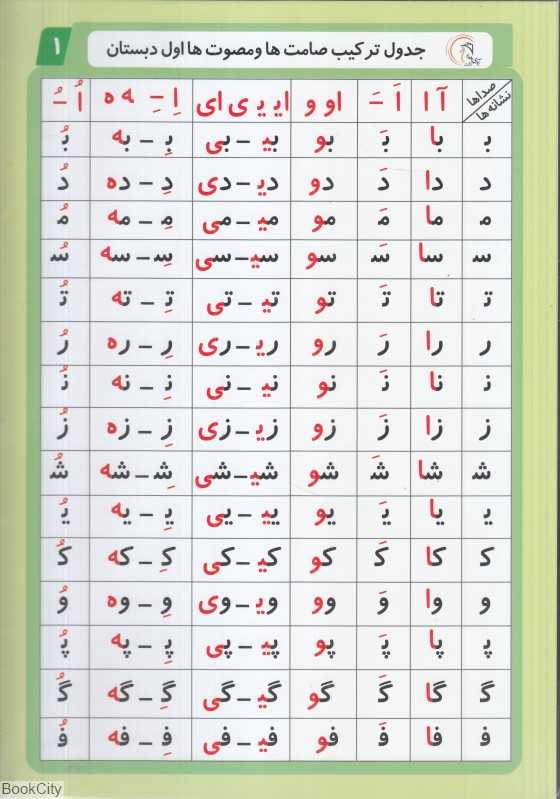 جدول ترکیب صامت ها ومصوت ها اول دبستان
۱
صداها نشانه‌ها آ ا اَ ـَ او و ایـ یـ ی ای اِ ـِ ـه ه اُ ـُ
بـ با بَـ بو بیـ – بی بِـ – به بُـ
د دا دَ دو دیـ – دی دِ – ده دُ
مـ ما مَـ مو میـ – می مِـ – مه مُـ
سـ سا سَـ سو سیـ – سی سِـ – سه سُـ
تـ تا تَـ تو تیـ – تی تِـ – ته تُـ
ر را رَ رو ریـ – ری رِ – ره رُ
نـ نا نَـ نو نیـ – نی نِـ – نه نُـ
ز زا زَ زو زیـ – زی زِ – زه زُ
شـ شا شَـ شو شیـ – شی شِـ – شه شُـ
یـ یا یَـ یو ییـ – یی یِـ – یه یُـ
کـ کا کَـ کو کیـ – کی کِـ – که کُـ
و وا وَ وو ویـ – وی وِ – وه وُ
پـ پا پَـ پو پیـ – پی پِـ – په پُـ
گـ گا گَـ گو گیـ – گی گِـ – گه گُـ
فـ فا فَـ فو فیـ – فی فِـ – فه فُـ
BookCity